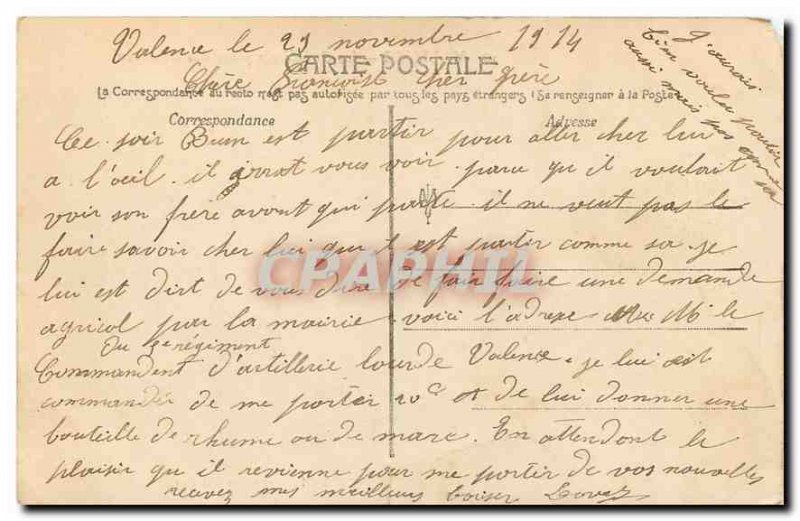 Valence le 29 novembre 1914
CARTE POSTALE
Chère Françoise cher frère
La Correspondance au recto n'est pas autorisée par tous les pays étrangers (Se renseigner à la Poste)
Correspondance
Adresse
Ce soir est partir pour aller cher lui
a l'oeil. il irrat vous voir parce qu il voulait
voir son frère avant qui parte. il ne veut pas le
faire savoir cher lui que il est partir comme sa. je
lui est dirt de vous dire de faire faire une demande
agricol par la mairie. voici l'adrese Mr le
du regiment
Commandent d'artillerie lourde Valence. je lui est
commander de me porter et de lui donner une
bouteille de rhume ou de marc. En attendent le
plaisir qu il revienne pour me portir de vos nouvelles
recevez mes meilleurs baiser
J'aurais
bien voulu partir
aussi mais pas comme
sa
CPAPHIL